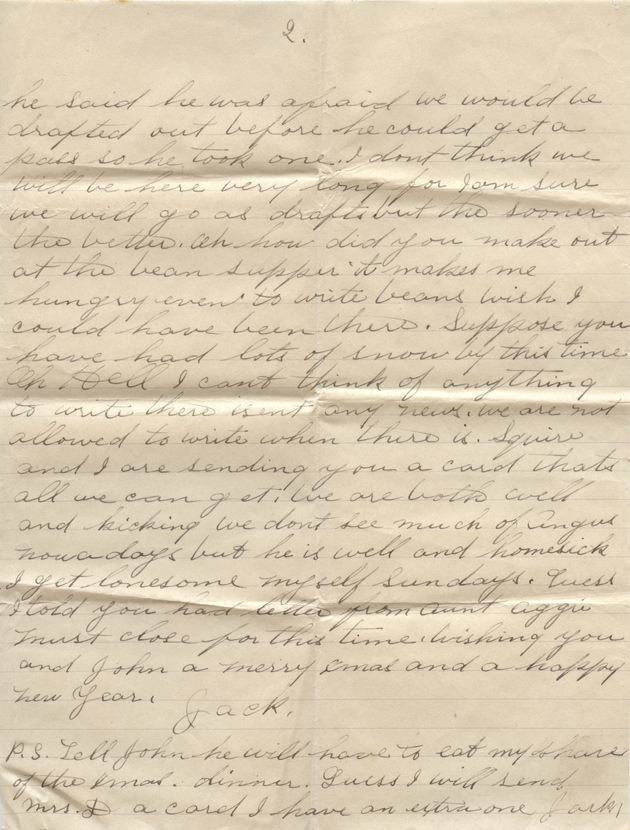 2.
he said he was afraid we would be
drafted out before he could get a
pass so he took one. I dont think we
will be here very long for I am sure
we will go as drafts but the sooner
the better. Oh how did you make out
at the bean supper it makes me
hungry even to write beans wish I
could have been there. Suppose you
have had lots of snow by this time
Oh Hell I cant think of anything
to write there isent any news. we are not
allowed to write when there is. Squire
and I are sending you a card thats
all we can get. We are both well
and kicking we dont see much of Angus
nowadays but he is well and homesick
I get lonesome myself Sundays. Guess
I told you had letter from aunt aggie
must close for this time. wishing you
and John a merry xmas and a happy
new Year.
Jack.
P.S. Tell John he will have to eat my share
of the xmas. dinner. Guess I will send
Mrs. a card I have an extra one Jack